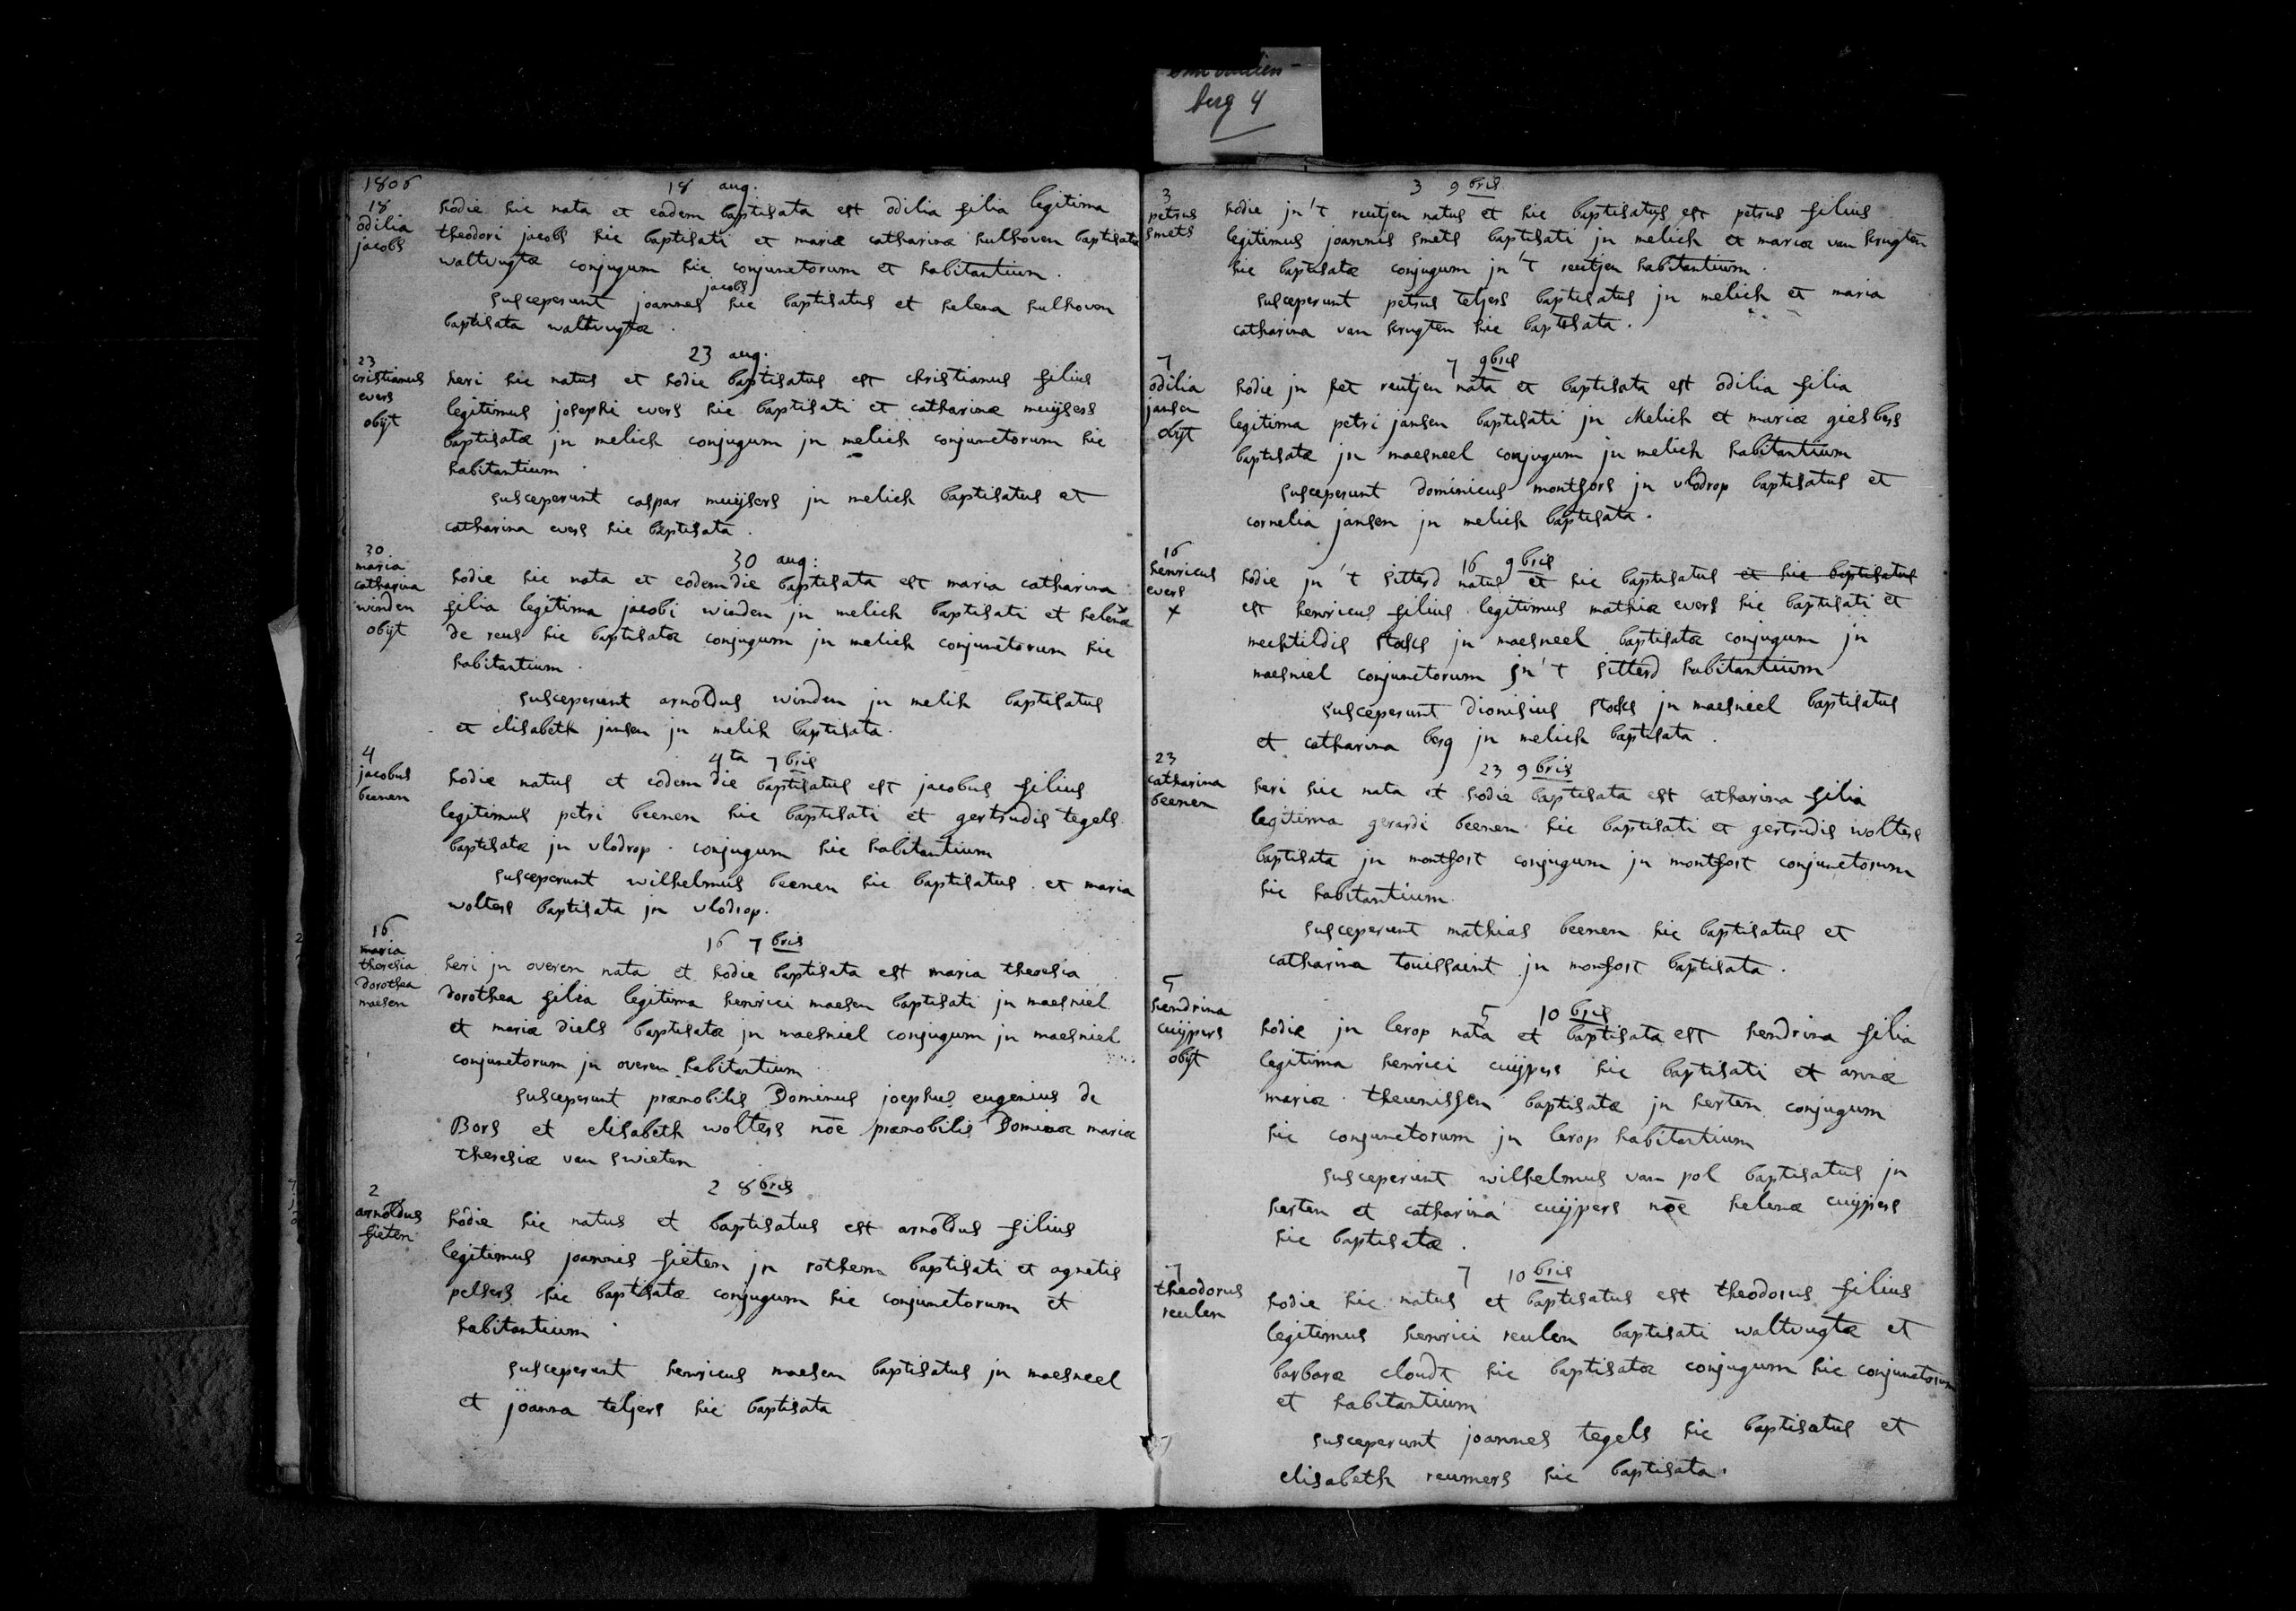 berg 4
1806
18 aug.
18
odilia
jacobs
hodie hic nata et eadem baptisata est odilia filia legitima
theodori jacobs hic baptisati et mariæ catharinæ hulhoven baptisatæ
waltvugtæ conjugum hic conjunctorum et habitantium.
susceperunt joannes jacobs hic baptisatus et helena hulhoven
baptisata waltvugtæ.
23 aug.
23
cristianus
evers
obijt
heri hic natus et hodie baptisatus est christianus filius
legitimus josephi evers hic baptisati et catharinæ muijsers
baptisatæ jn melich conjugum jn melich conjunctorum hic
habitantium.
susceperunt caspar muijsers jn melich baptisatus et
catharina evers hic baptisata.
30 aug:
30
maria
catharina
winden
obijt
hodie hic nata et eodem die baptisata est maria catharina
filia legitima jacobi winden jn melich baptisati et helenæ
de reus hic baptisatæ conjugum jn melich conjunctorum hic
habitantium.
susceperunt arnoldus winden jn melich baptisatus
et elisabeth jansen jn melich baptisata.
4ta 7bris
4
jacobus
beenen
hodie natus et eodem die baptisatus est jacobus filius
legitimus petri beenen hic baptisati et gertrudis tegels
baptisatæ jn vlodrop. conjugum hic habitantium
susceperunt wilhelmus beenen hic baptisatus et maria
wolters baptisata jn vlodrop.
16 7bris
16
maria
theresia
dorothea
maesen
heri jn overen nata et hodie baptisata est maria theresia
dorothea filia legitima henrici maesen baptisati jn maesniel
et mariæ diels baptisatæ jn maesniel conjugum jn maesniel
conjunctorum jn overen habitantium
susceperunt prænobilis Dominus joephus eugenius de
Bors et elisabeth wolters noē prænobilis Dominæ mariæ
theresiæ van swieten
2 8bris
2
arnoldus
fieten
hodie hic natus et baptisatus est arnoldus filius
legitimus joannis fieten jn rothem baptisati et agnetis
pelsers hic baptisatæ conjugum hic conjunctorum et
habitantium.
susceperunt henricus maesen baptisatus jn maesneel
et joanna teljers hic baptisata
3 9bris
3
petrus
smets
hodie jn't reutjen natus et hic baptisatus est petrus filius
legitimus joannis smets baptisati jn melich et mariæ van krugten
hic baptisatæ conjugum jn't reutjen habitantium.
susceperunt petrus teljers baptisatus jn melich et maria
catharina van krugten hic baptisata.
7 9bris
7
odilia
jansen
obijt
hodie jn het reutjen nata et baptisata est odilia filia
legitima petri jansen baptisati jn Melich et mariæ giesbers
baptisatæ jn maesneel conjugum jn melich habitantium
susceperunt dominicus montfors jn vlodrop baptisatus et
cornelia jansen jn melich baptisata.
16 9bris
16
henricus
evers
x
hodie jn't sitterd natus et hic baptisatus et hic baptisatus
est henricus filius legitimus mathiæ evers hic baptisati et
mechtildis stocks jn maesneel baptisatæ conjugum jn
maesniel conjunctorum jn't sitterd habitantium
susceperunt dionisius stocks jn maesneel baptisatus
et catharina berg jn melich baptisata.
23 9bris
23
catharina
beenen
heri hic nata et hodie baptisata est catharina filia
legitima gerardi beenen hic baptisati et gertrudis wolters
baptisata jn montfort conjugum jn montfort conjunctorum
hic habitantium.
susceperunt mathias beenen hic baptisatus et
catharina touissaint jn monfort baptisata.
5 10bris
5
hendrina
cuijpers
obijt
hodie jn lerop nata et baptisata est hendrina filia
legitima henrici cuijpers hic baptisati et annæ
mariæ theunissen baptisatæ jn herten conjugum
hic conjunctorum jn lerop habitantium
susceperunt wilhelmus van pol baptisatus jn
herten et catharina cuijpers noē helenæ cuijpers
hic baptisatæ.
7 10bris
7
theodorus
reulen
hodie hic natus et baptisatus est theodorus filius
legitimus henrici reulen baptisati waltvugtæ et
barbaræ cloudt hic baptisatæ conjugum hic conjunctorum
et habitantium
susceperunt joannes tegels hic baptisatus et
elisabeth reumers hic baptisata.